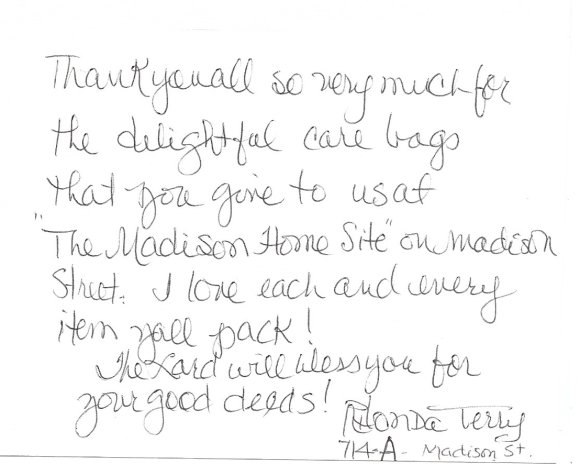 Thank you all so very much for
the delightful care bags
that you give to us at
"The Madison Home Site" on madison
Street. I love each and every
item yall pack!
The Lord will bless you for
your good deeds!
Rhonda Terry
714-A- Madison St.